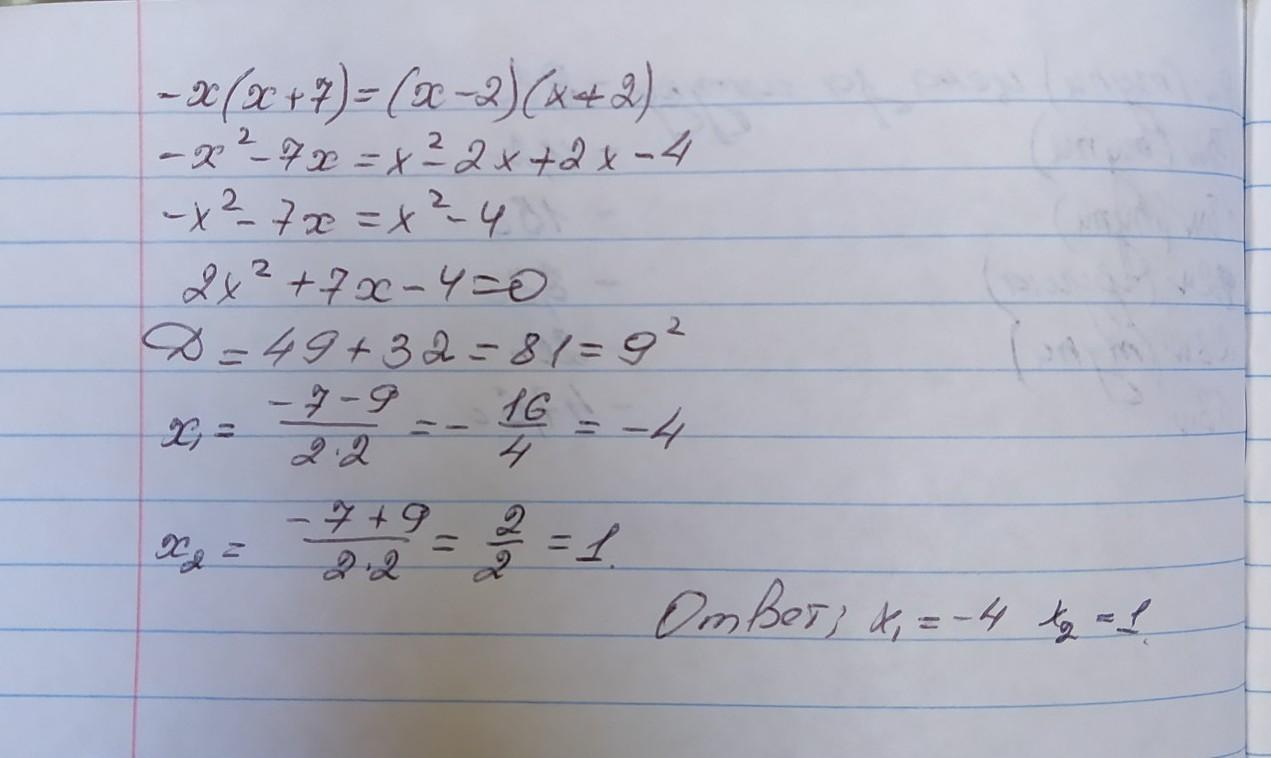 -x(x+7)=(x-2)(x+2)
-x²-7x=x²-2x+2x-4
-x²-7x=x²-4
2x²+7x-4=0
D=49+32=81=9²
x₁= (-7-9)/(2·2) =- 16/4 = -4
x₂= (-7+9)/(2·2) = 2/2 =1.
Ответ; x₁=-4 x₂=1.